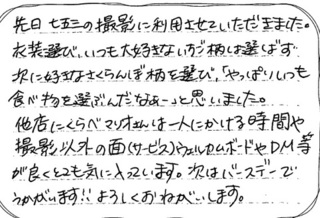 先日七五三の撮影に利用させていただきました。
衣装選び、いつも大好きないちご柄は選ばず
次に好きなさくらんぼ柄を選び、「やっぱりいつも
食べ物を選ぶんだなぁー」と思いました。
他店にくらべマリオさんは一人にかける時間や
撮影以外の面(サービス)ウェルカムボードやDM等
が良くとても気に入っています。次はバースデーで
うかがいます!!よろしくおねがいします。